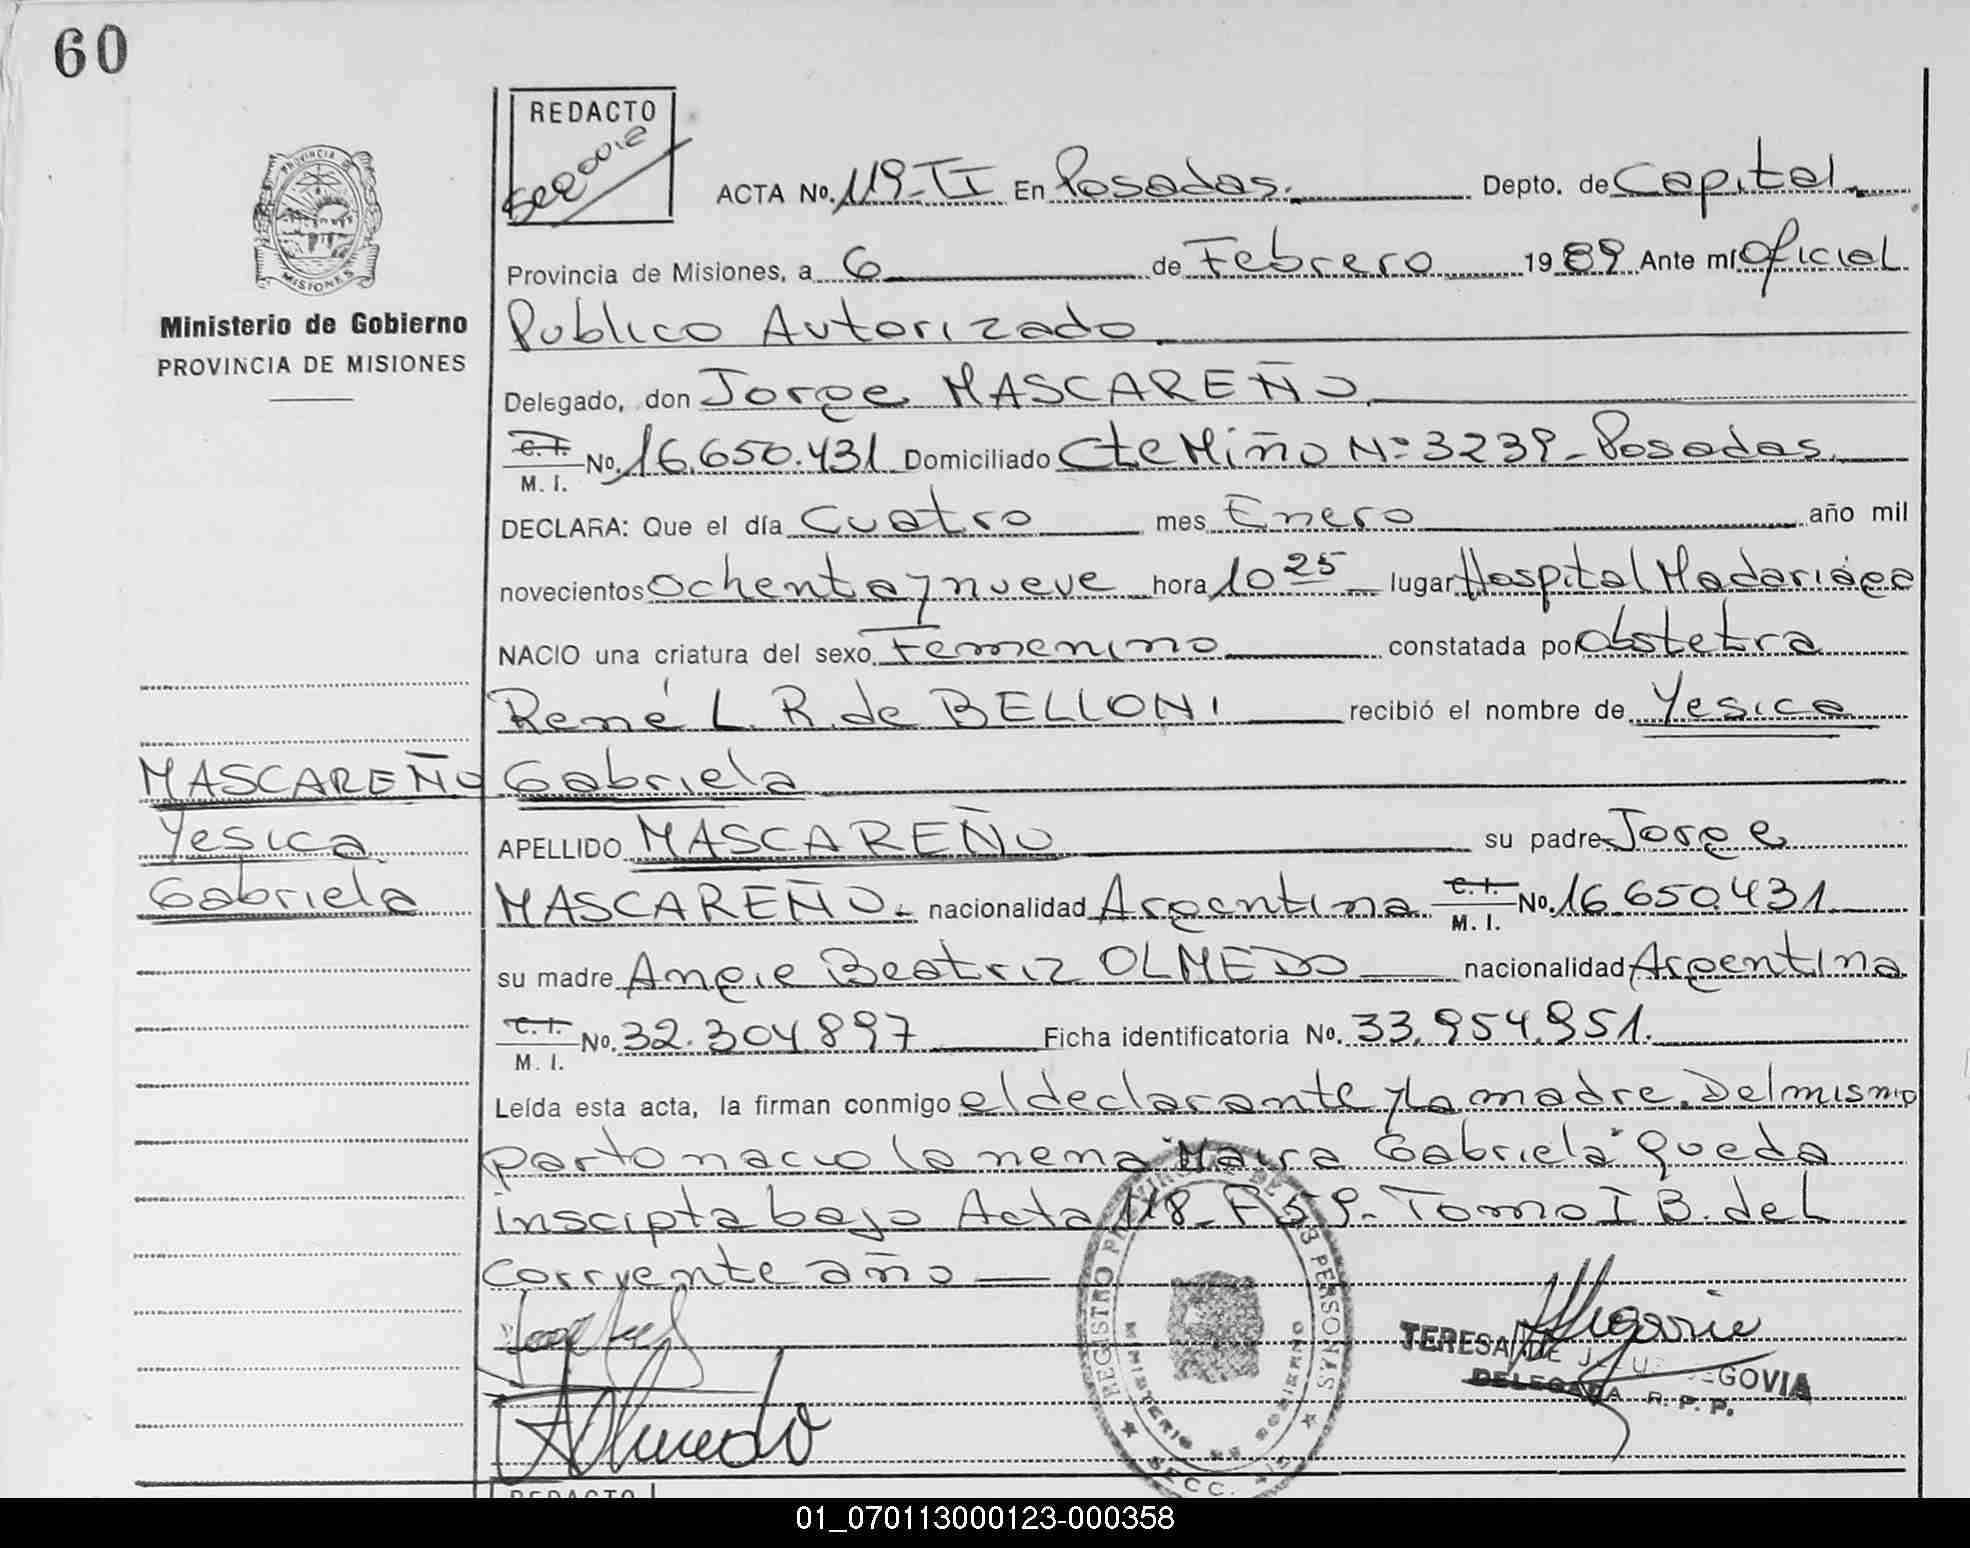 60
REDACTO
ACTA No. 119-TI En Posadas. Depto. de Capital.
Provincia de Misiones, a 6 de Febrero 1989 Ante mí Oficial
Publico Autorizado
Ministerio de Gobierno
PROVINCIA DE MISIONES
Delegado, don Jorge MASCAREÑO
C.I. No. 16.650.431 Domiciliado Cte Miño Nº 3239-Posadas.
M. I.
DECLARA: Que el día Cuatro mes Enero año mil
novecientos Ochenta y nueve hora 10 25 lugar Hospital Madariaga
NACIO una criatura del sexo Femenino constatada por Obstetra
René L. R. de BELLONI recibió el nombre de Yesica
Gabriela
MASCAREÑO
Yesica
Gabriela
APELLIDO MASCAREÑO su padre Jorge
MASCAREÑO. nacionalidad Argentina C.I. No. 16.650.431
M. I.
su madre Angie Beatriz OLMEDO nacionalidad Argentina
C.I. No. 32.304.897 Ficha identificatoria No. 33.954.951.
M. I.
Leída esta acta, la firman conmigo el declarante y la madre. Del mismo
parto nacio la nena "Maira Gabriela" queda
inscipta bajo Acta 118-F59-Tomo I B. del
corryente año
Olmedo
TERESA DE J. SEGOVIA
DELEGADA R. P. P.
REGISTRO PROVINCIAL DE LAS PERSONAS
MINISTERIO DE GOBIERNO
SECC.
PROVINCIA DE
MISIONES
REDACTO
01_070113000123-000358